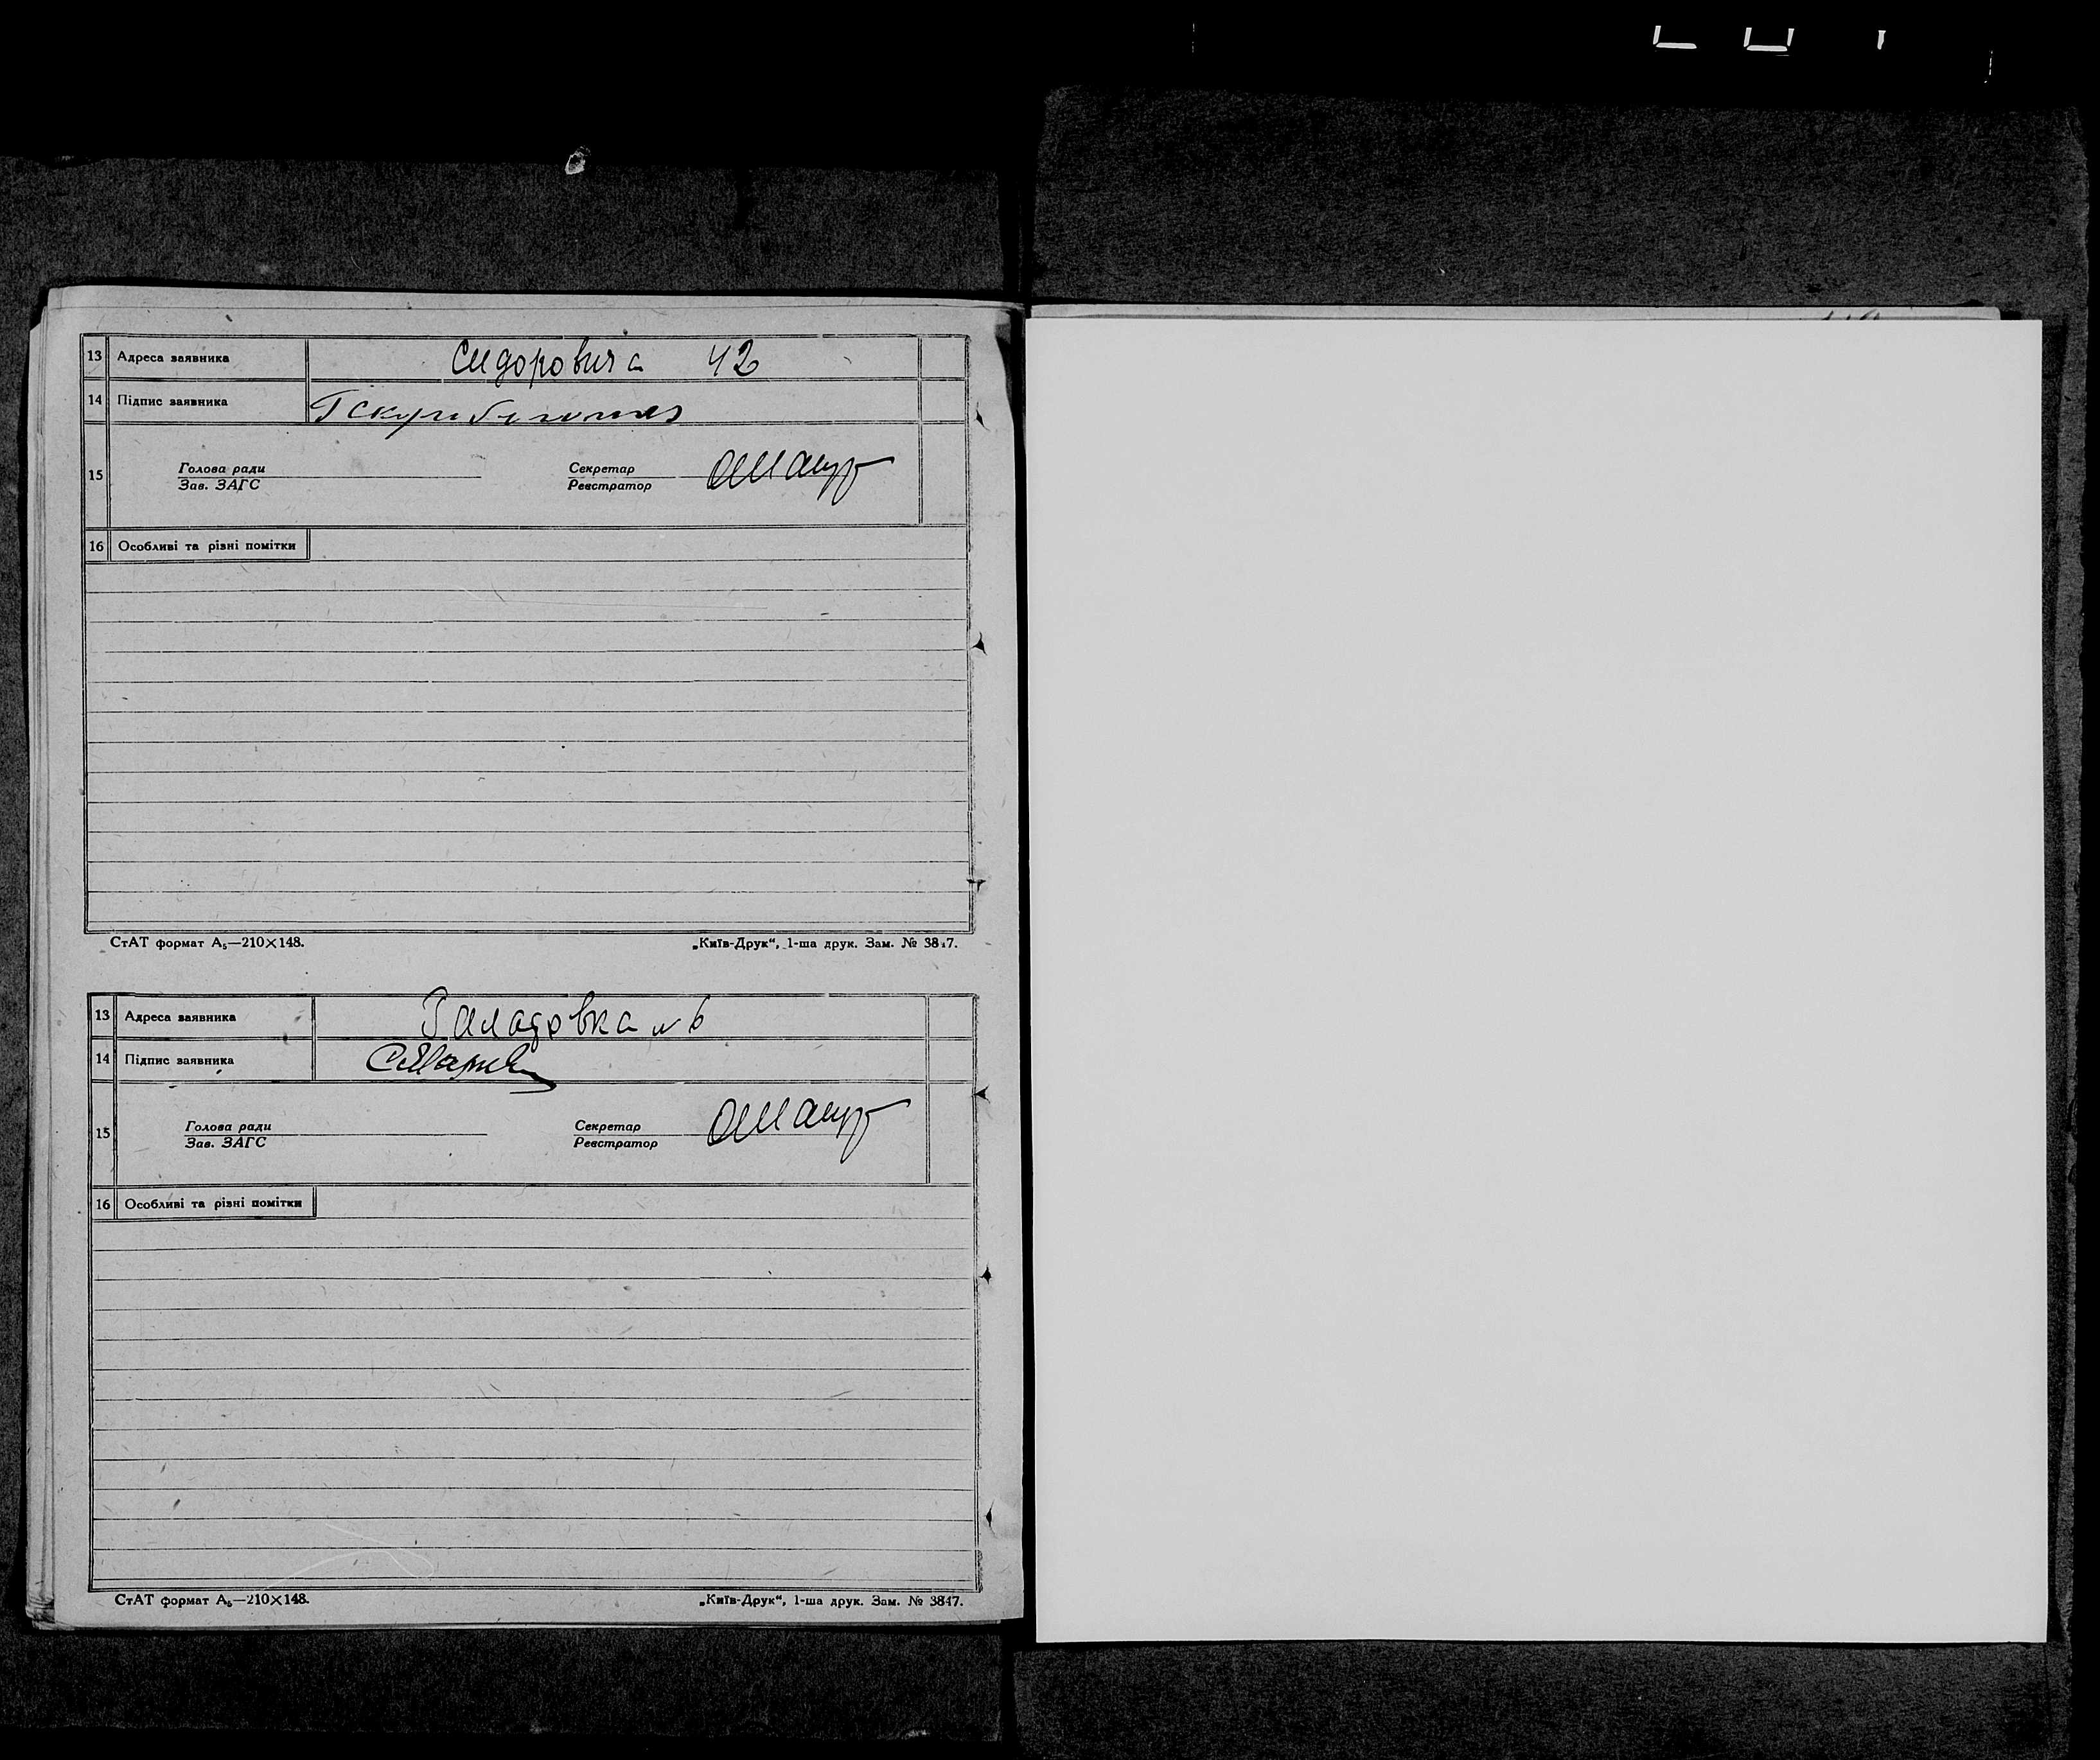 13 Адреса заявника Сидоровича 42
14 Підпис заявника
15 Голова ради Секретар
Зав. ЗАГС Реєстратор
16 Особливі та різні помітки
СтАТ формат А₅—210×148. „Київ-Друк“, 1-ша друк. Зам. № 3847.
13 Адреса заявника №6
14 Підпис заявника
15 Голова ради Секретар
Зав. ЗАГС Реєстратор
16 Особливі та різні помітки
СтАТ формат А₅—210×148. „Київ-Друк“, 1-ша друк. Зам. № 3847.